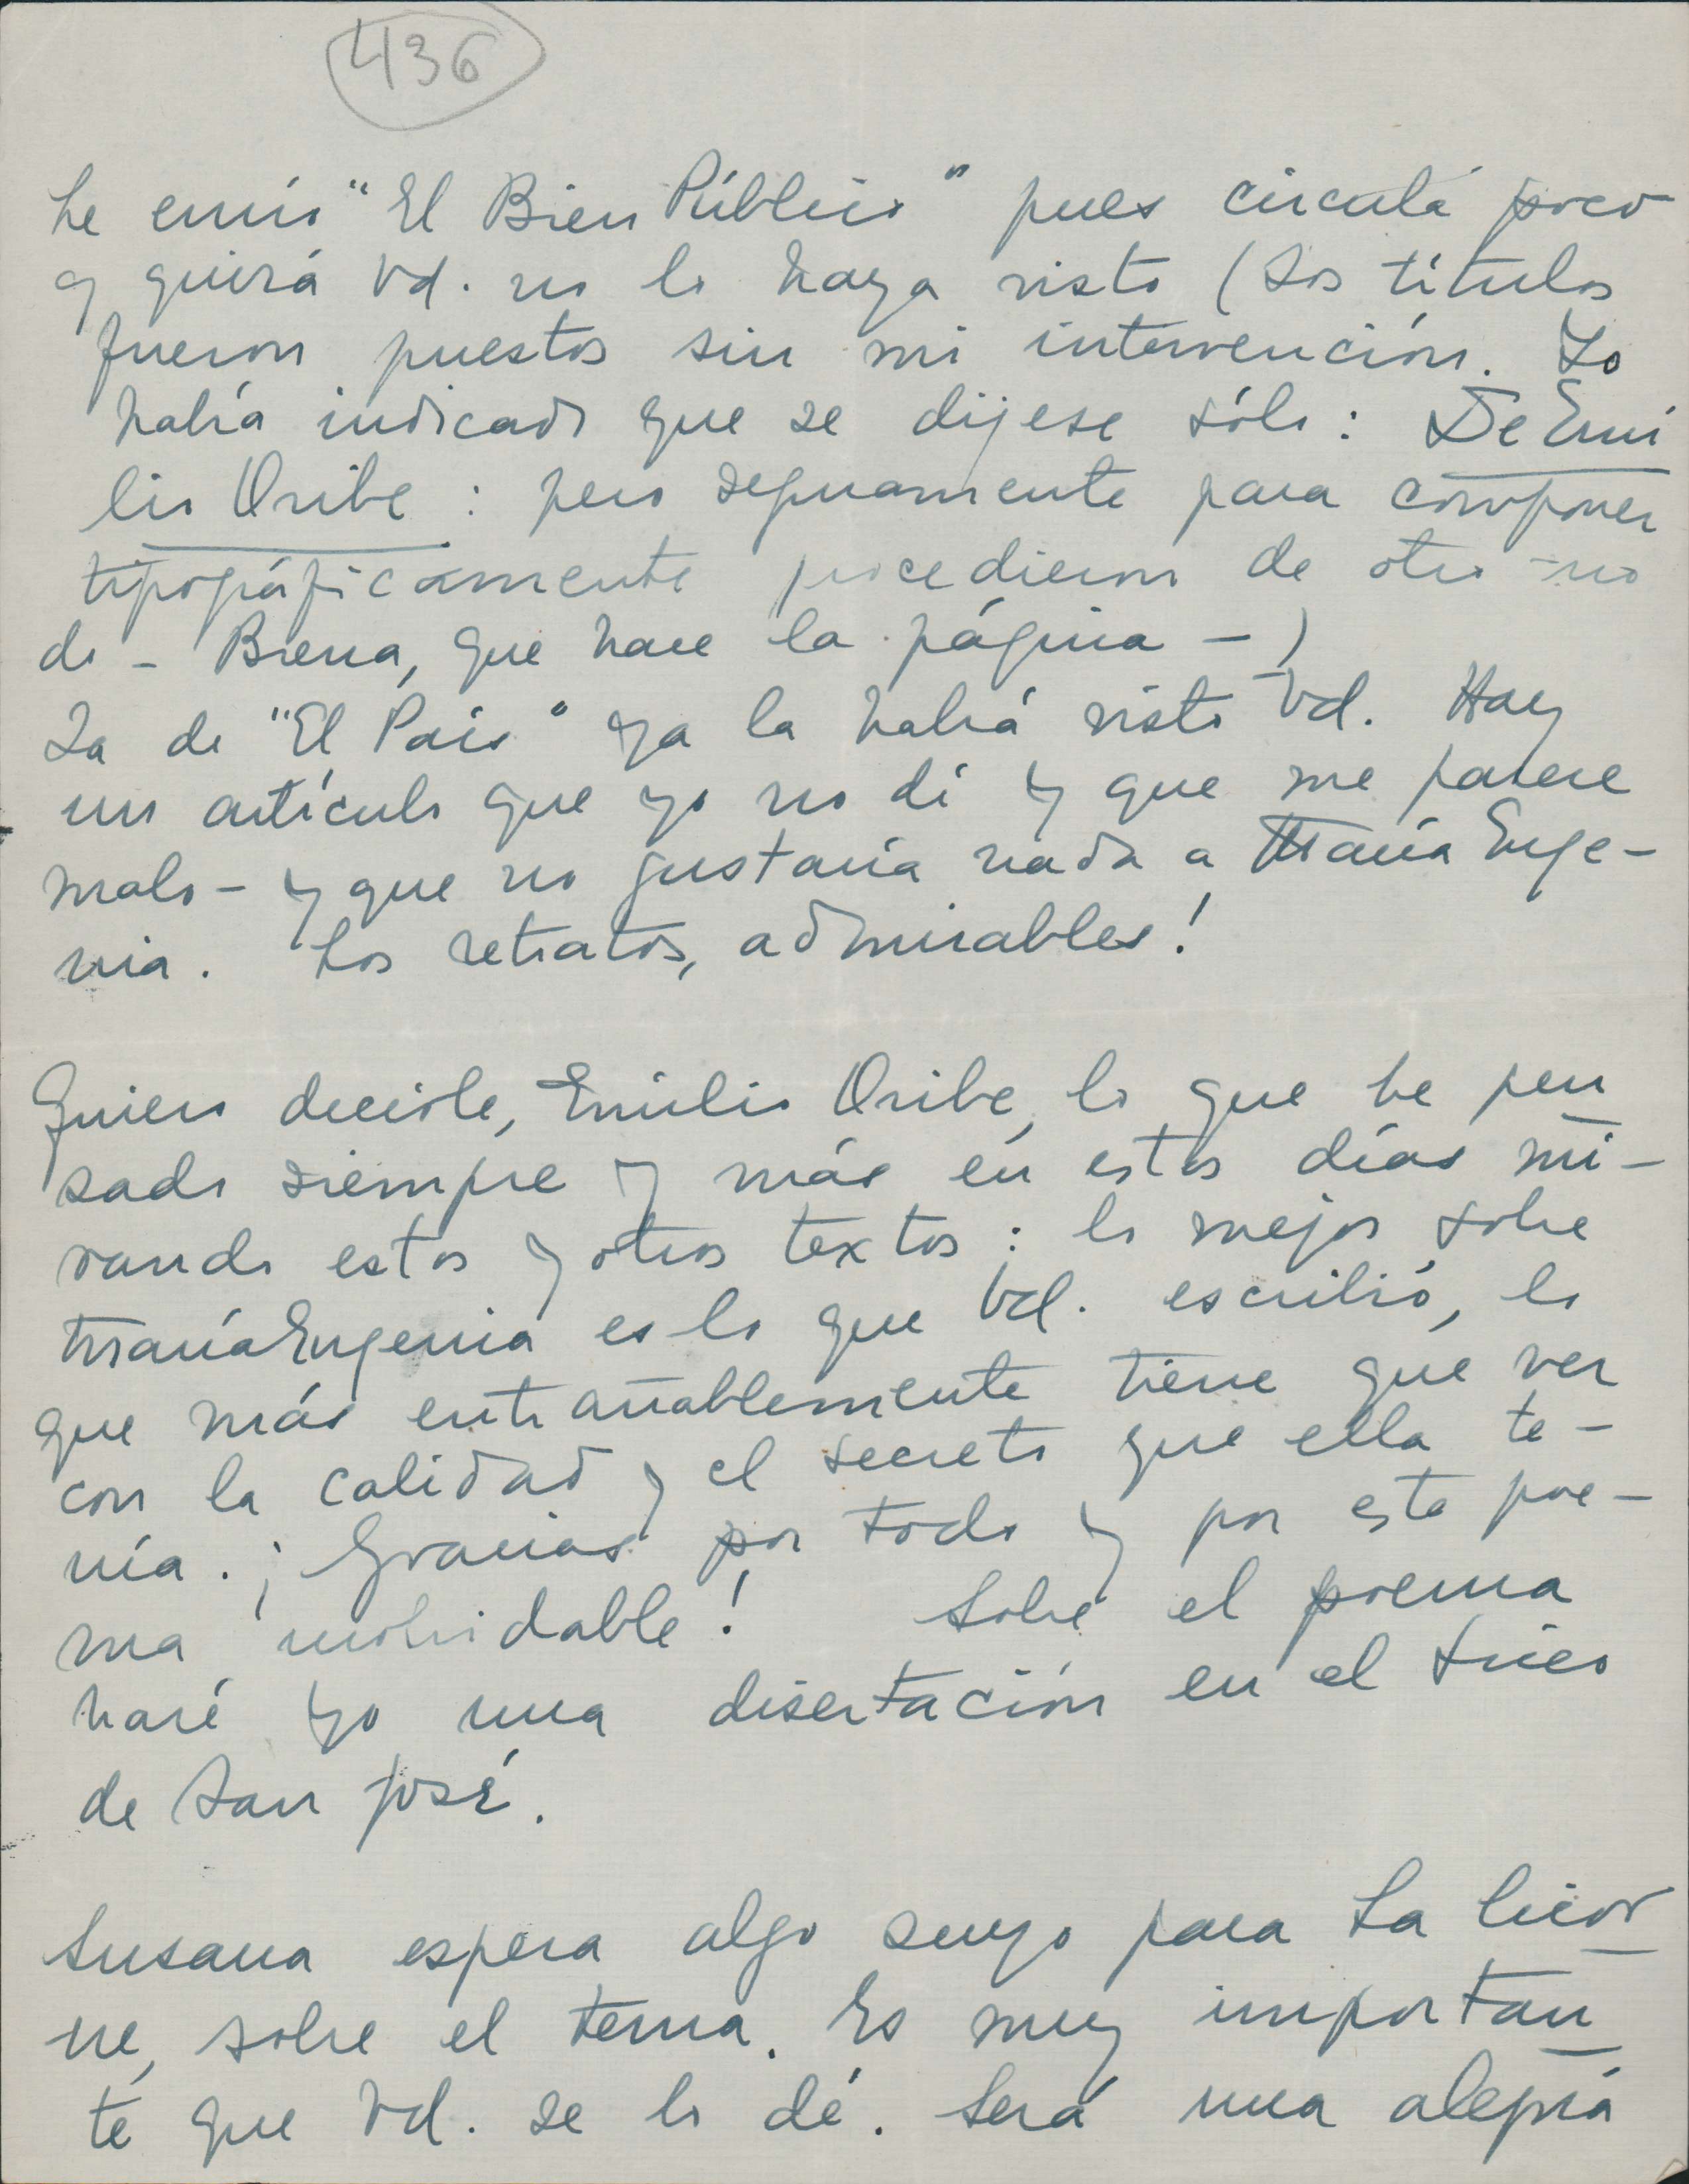 436
Le envío "El Bien Público" pues circula poco
y quizá Vd. no lo haya visto (Los títulos
fueron puestos sin mi intervención. Yo
había indicado que se dijese sólo: De Emi
lio Oribe: pero seguramente para componer
tipográficamente procedieron de otro mo
do - Brena, que hace la página - )
La de "El País" ya la habrá visto Vd. Hay
un artículo que yo no dí y que me parece
malo - y que no gustaría nada a María Euge-
nia. Los retratos, admirables!
Quiero decirle, Emilio Oribe, lo que he pen
sado siempre y más en estos días mi-
rando estos y otros textos: lo mejor sobre
María Eugenia es lo que Vd. escribió, lo
que más entrañablemente tiene que ver
con la calidad y el secreto que ella te-
nía. ¡Gracias por todo y por este poe-
ma inolvidable! Sobre el poema
haré yo una disertación en el Liceo
de San José.
Susana espera algo suyo para La Licor
ne, sobre el tema. Es muy importan
te que Vd. se lo dé. Será una alegría